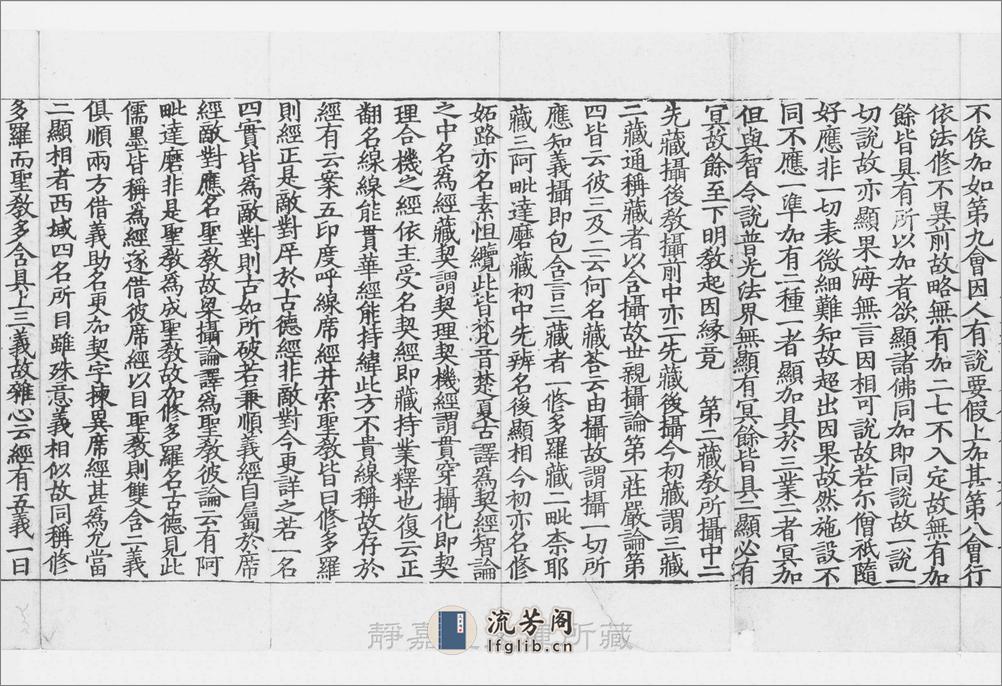 不俟加如第九會因人有說要假上加其第八會行
依法修不異前故略無有加二七不入定故無有加
餘皆具有所以加者欲顯諸佛同加即同說故一說一
切說故亦顯果海無言因相可說故若尒僧祇隨
好應非一切表微細難知故超出因果故然施設不
同不應一準加有二種一者顯加具於三業二者冥加
但與智令說普光法界無顯有冥餘皆具二顯必有
冥故餘至下明敎起因緣竟 第二藏敎所攝中二
先藏攝後敎攝前中亦二先藏後攝今初藏謂三藏
二藏通稱藏者以含攝故世親攝論第一莊嚴論第
四皆云彼三及二云何名藏荅云由攝故謂攝一切所
應知義攝即包含言三藏者一修多羅藏二毗柰耶
藏三阿毗達磨藏初中先辨名後顯相今初亦名修
妬路亦名素怛纜此皆梵音楚夏古譯爲契經智論
之中名爲經藏契謂契理契機經謂貫穿攝化即契
理合機之經依主受名契經即藏持業釋也復云正
翻名線線能貫華經能持緯此方不貴線稱故存於
經有云案五印度呼線席經井索聖敎皆曰修多羅
則經正是敵對厈於古德經非敵對今更詳之若一名
四貫皆爲敵對則古如所破若兼順義經自屬於席
經敵對應名聖敎故梁攝論譯爲聖敎彼論云有阿
毗達磨非是聖敎爲成聖敎故加修多羅名古德見此
儒墨皆稱爲經遂借彼席經以目聖敎則雙含二義
俱順兩方借義助名更加契字揀異席經甚爲允當
二顯相者西域四名所目雖殊意義相似故同稱修
多羅而聖敎多含具上三義故雜心云經有五義一曰
靜嘉 所藏
流芳阁
lfglib.cn